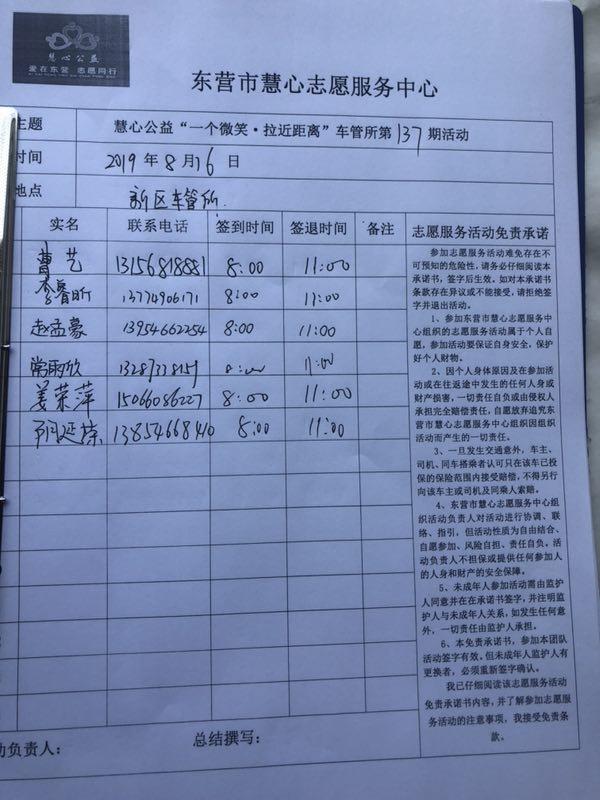 慧心公益
爱在东营 志愿同行
东营市慧心志愿服务中心
主题 慧心公益“一个微笑·拉近距离”车管所第137期活动
时间 2019年8月16日
地点 新区车管所
实名 联系电话 签到时间 签退时间 备注 志愿服务活动免责承诺
曹艺 13156818881 8:00 11:00
李睿昕 13774906171 8:00 11:00
赵孟豪 13954662254 8:00 11:00
常雨欣 13287338159 8:00 11:00
姜荣萍 15066086227 8:00 11:00
延栋 13854668410 8:00 11:00
参加志愿服务活动难免存在不
可预知的危险性，请务必仔细阅读本
承诺书，签字后生效。如对本承诺书
条款存在异议或不能接受，请拒绝签
字并退出活动。
1、参加东营市慧心志愿服务中
心组织的志愿服务活动属于个人自
愿。参加活动要保证自身安全，保护
好个人财物。
2、因个人身体原因及在参加活
动或在往返途中发生的任何人身或
财产损害，一切责任自负或由侵权人
承担完全赔偿责任，自愿放弃追究东
营市慧心志愿服务中心组织因组织
活动而产生的一切责任。
3、一旦发生交通意外，车主、
司机、同车搭乘者认可只在该车已投
保的保险范围内接受赔偿，不得另行
向该车主或司机及同乘人索赔。
4、东营市慧心志愿服务中心组
织活动负责人对活动进行协调、联
络、指引，但活动性质为自由结合、
自愿参加、风险自担、责任自负。活
动负责人不担保或提供任何参加人
的人身和财产的安全保障。
5、未成年人参加活动需由监护
人同意并在在承诺书签字，并注明监
护人与未成年人关系，如发生任何意
外，一切责任由监护人承担。
6、本免责承诺书，参加本团队
活动签字有效。但未成年人监护人有
更换者，必须重新签字确认。
我已仔细阅读该志愿服务活动
免责承诺书内容，并了解参加志愿服
务活动的注意事项，我接受免责条
款。
动负责人： 总结撰写：